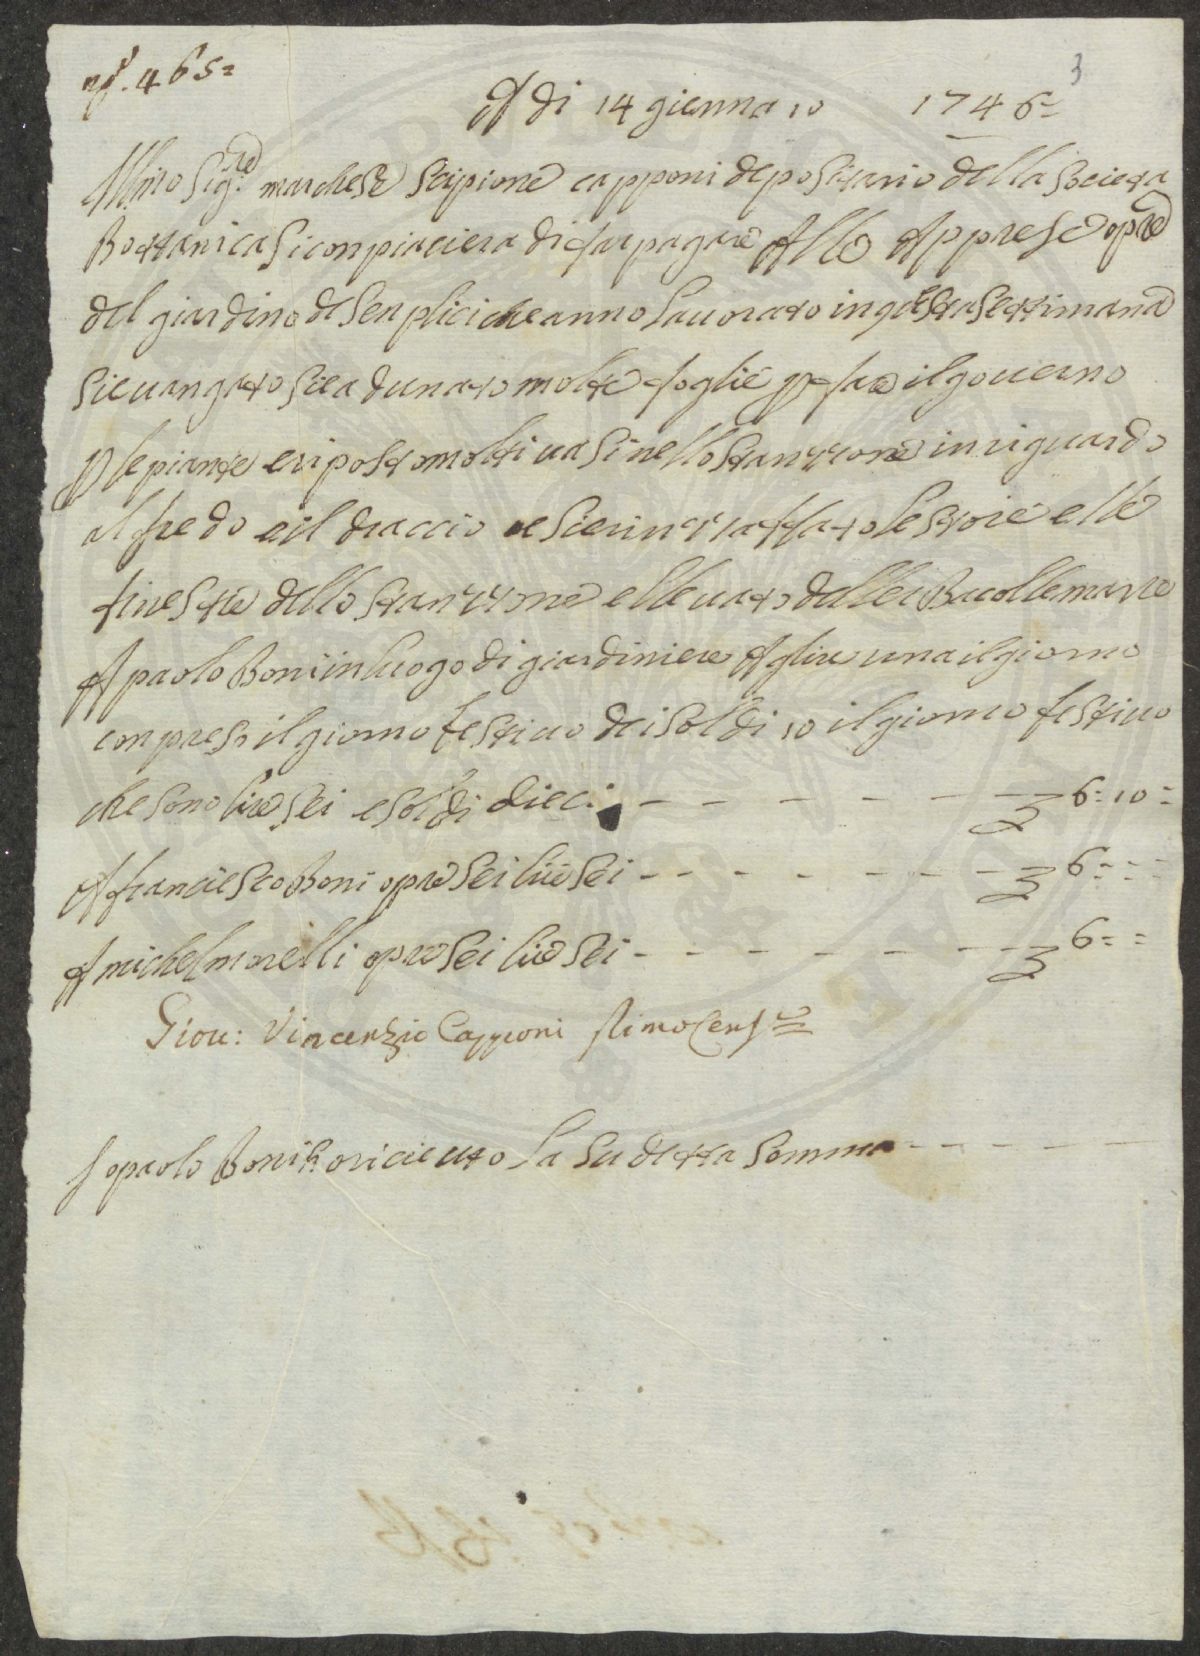 n.° 465=
3
A di 14 giennaio 1746=
Ill:mo Sig:re marchese scipione capponi depositario della Societa
Bottanica Si conpiaciera di far pagare Alle Apprese opre
del giardino de Senplici che anno Lauorato in questa Settimana
Sie uangato Sie adunato molte foglie p fare il gouerno
p le piante e riposto molti uasi nello stanzione in riguardo
al fredo e il diaccio e Sie rinzaffato le store e lle
finestre dello stanzione
A paolo Boni in luogo di giardiniere A glire una il giorno
conpreso il giorno festiuo dei soldi 10 il giorno festiuo
che sono lire sei e soldi dieci - - - - - - - 6=10=
A franciescо Boni opre Sei lire Sei - - - - - - - 6= = =
A michel morelli opre Sei lire Sei - - - - - - - 6= =
Giou: Vincenzio Capponi
Io paolo Boni ho riceuto La Sudetta Somma - - - - -